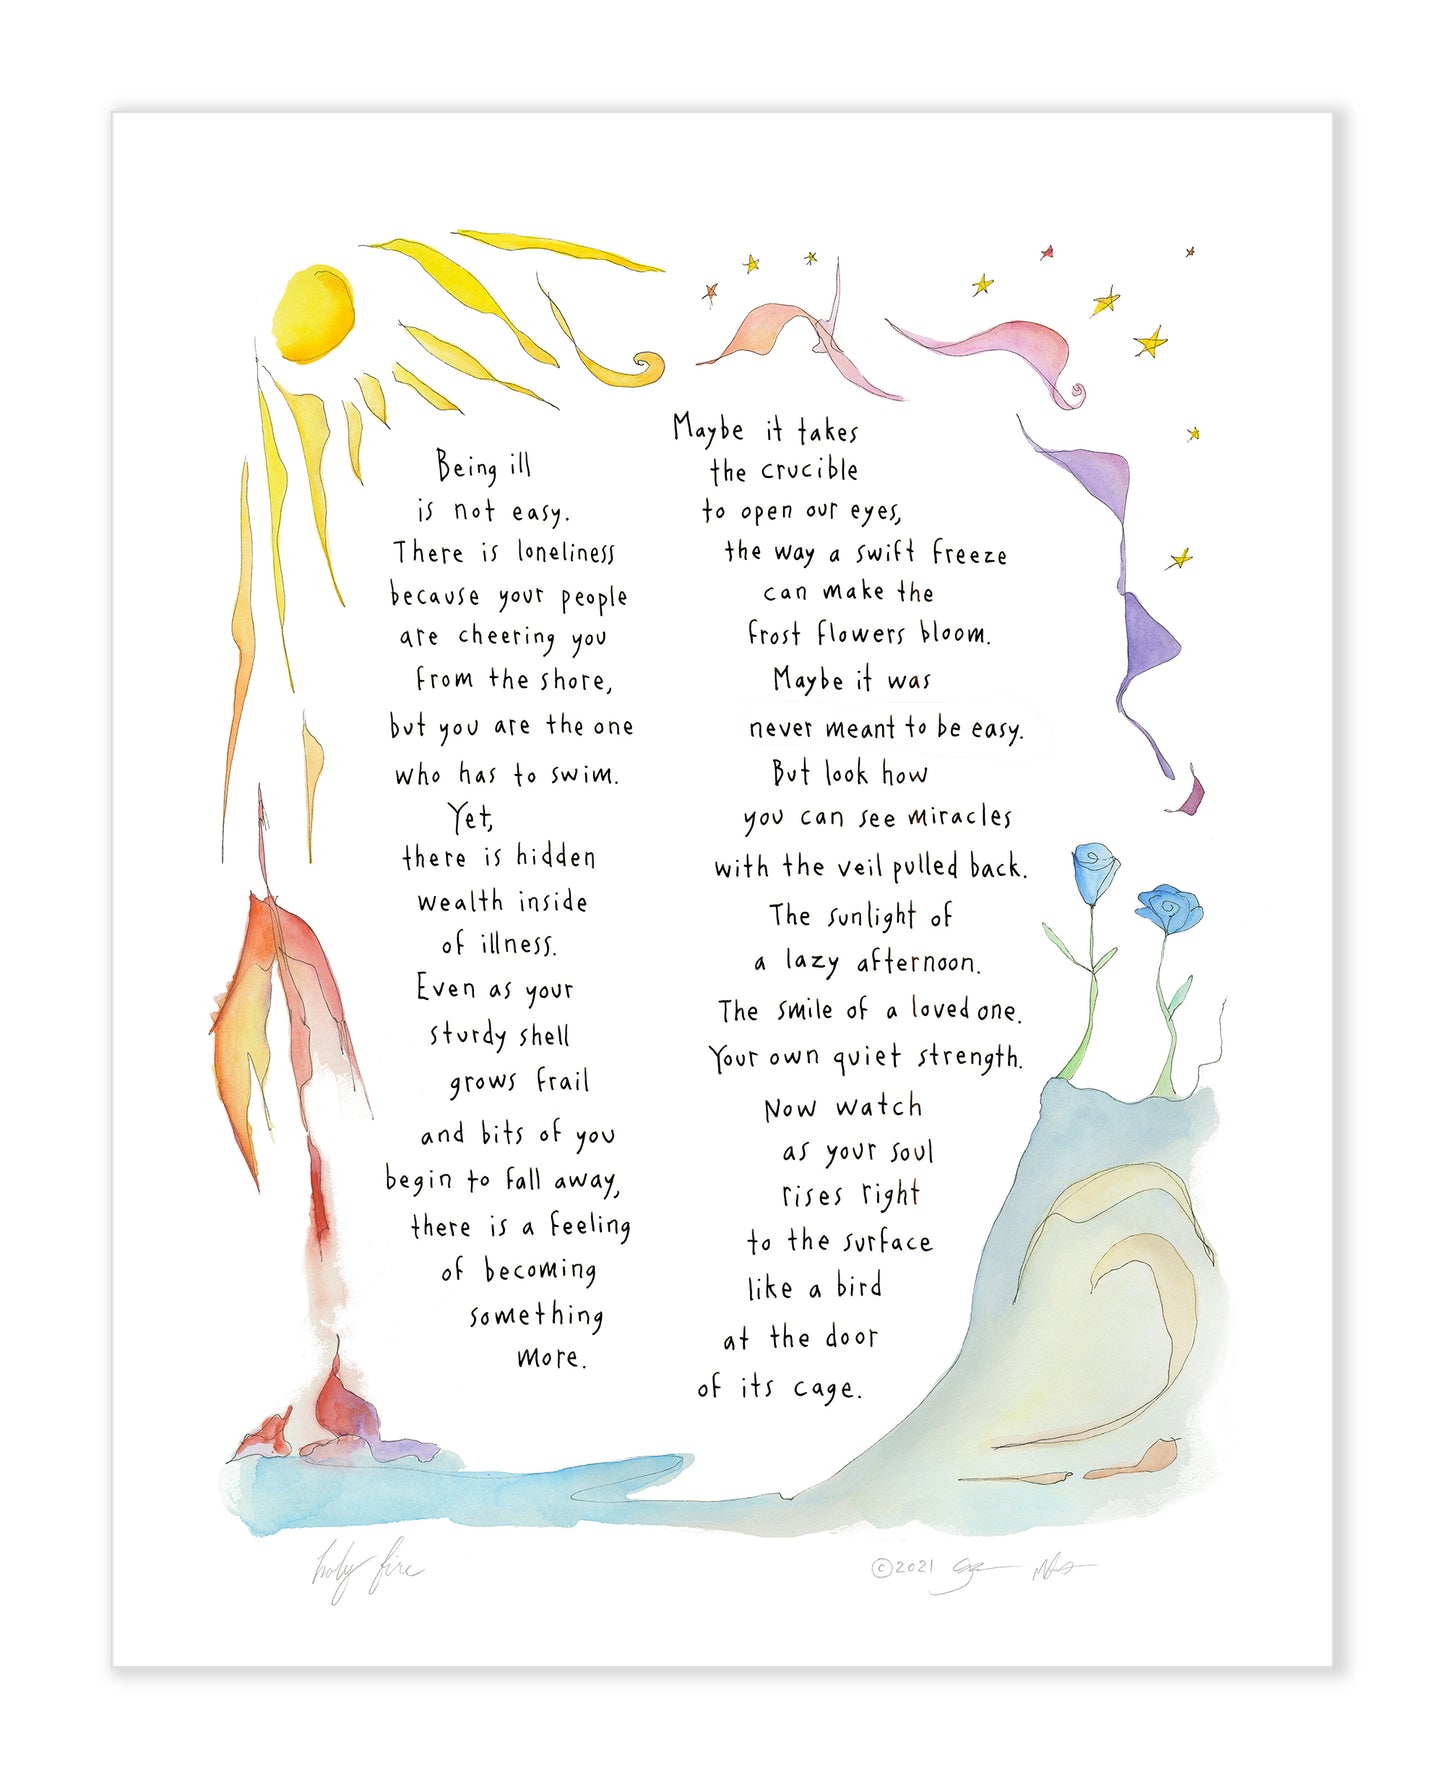 Being ill
is not easy.
There is loneliness
because your people
are cheering you
from the shore,
but you are the one
who has to swim.
Yet,
there is hidden
wealth inside
of illness.
Even as your
sturdy shell
grows frail
and bits of you
begin to fall away,
there is a feeling
of becoming
something
more.
Maybe it takes
the crucible
to open our eyes,
the way a swift freeze
can make the
frost flowers bloom.
Maybe it was
never meant to be easy.
But look how
you can see miracles
with the veil pulled back.
The sunlight of
a lazy afternoon.
The smile of a loved one.
Your own quiet strength.
Now watch
as your soul
rises right
to the surface
like a bird
at the door
of its cage.
holy fire
©2021